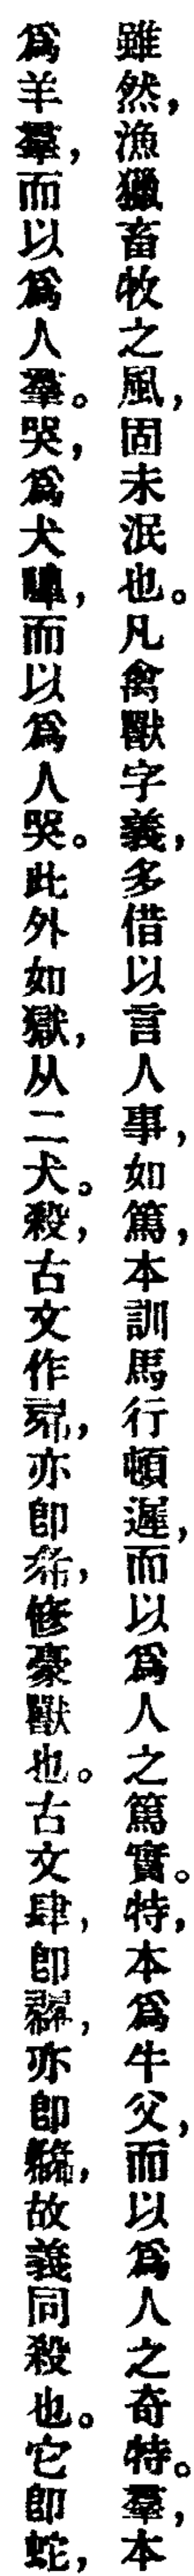 雖然，漁獵畜牧之風，固未泯也。凡禽獸字義，多借以言人事，如篤，本訓馬行頓遲，而以爲人之篤實。特，本爲牛父，而以爲人之奇特。羣，本
爲羊羣，而以爲人羣。哭，爲犬嘷，而以爲人哭。此外如獄，从二犬。殺，古文作，亦卽㣇，修豪獸也。古文肆，卽，亦卽，故義同殺也。它卽蛇，